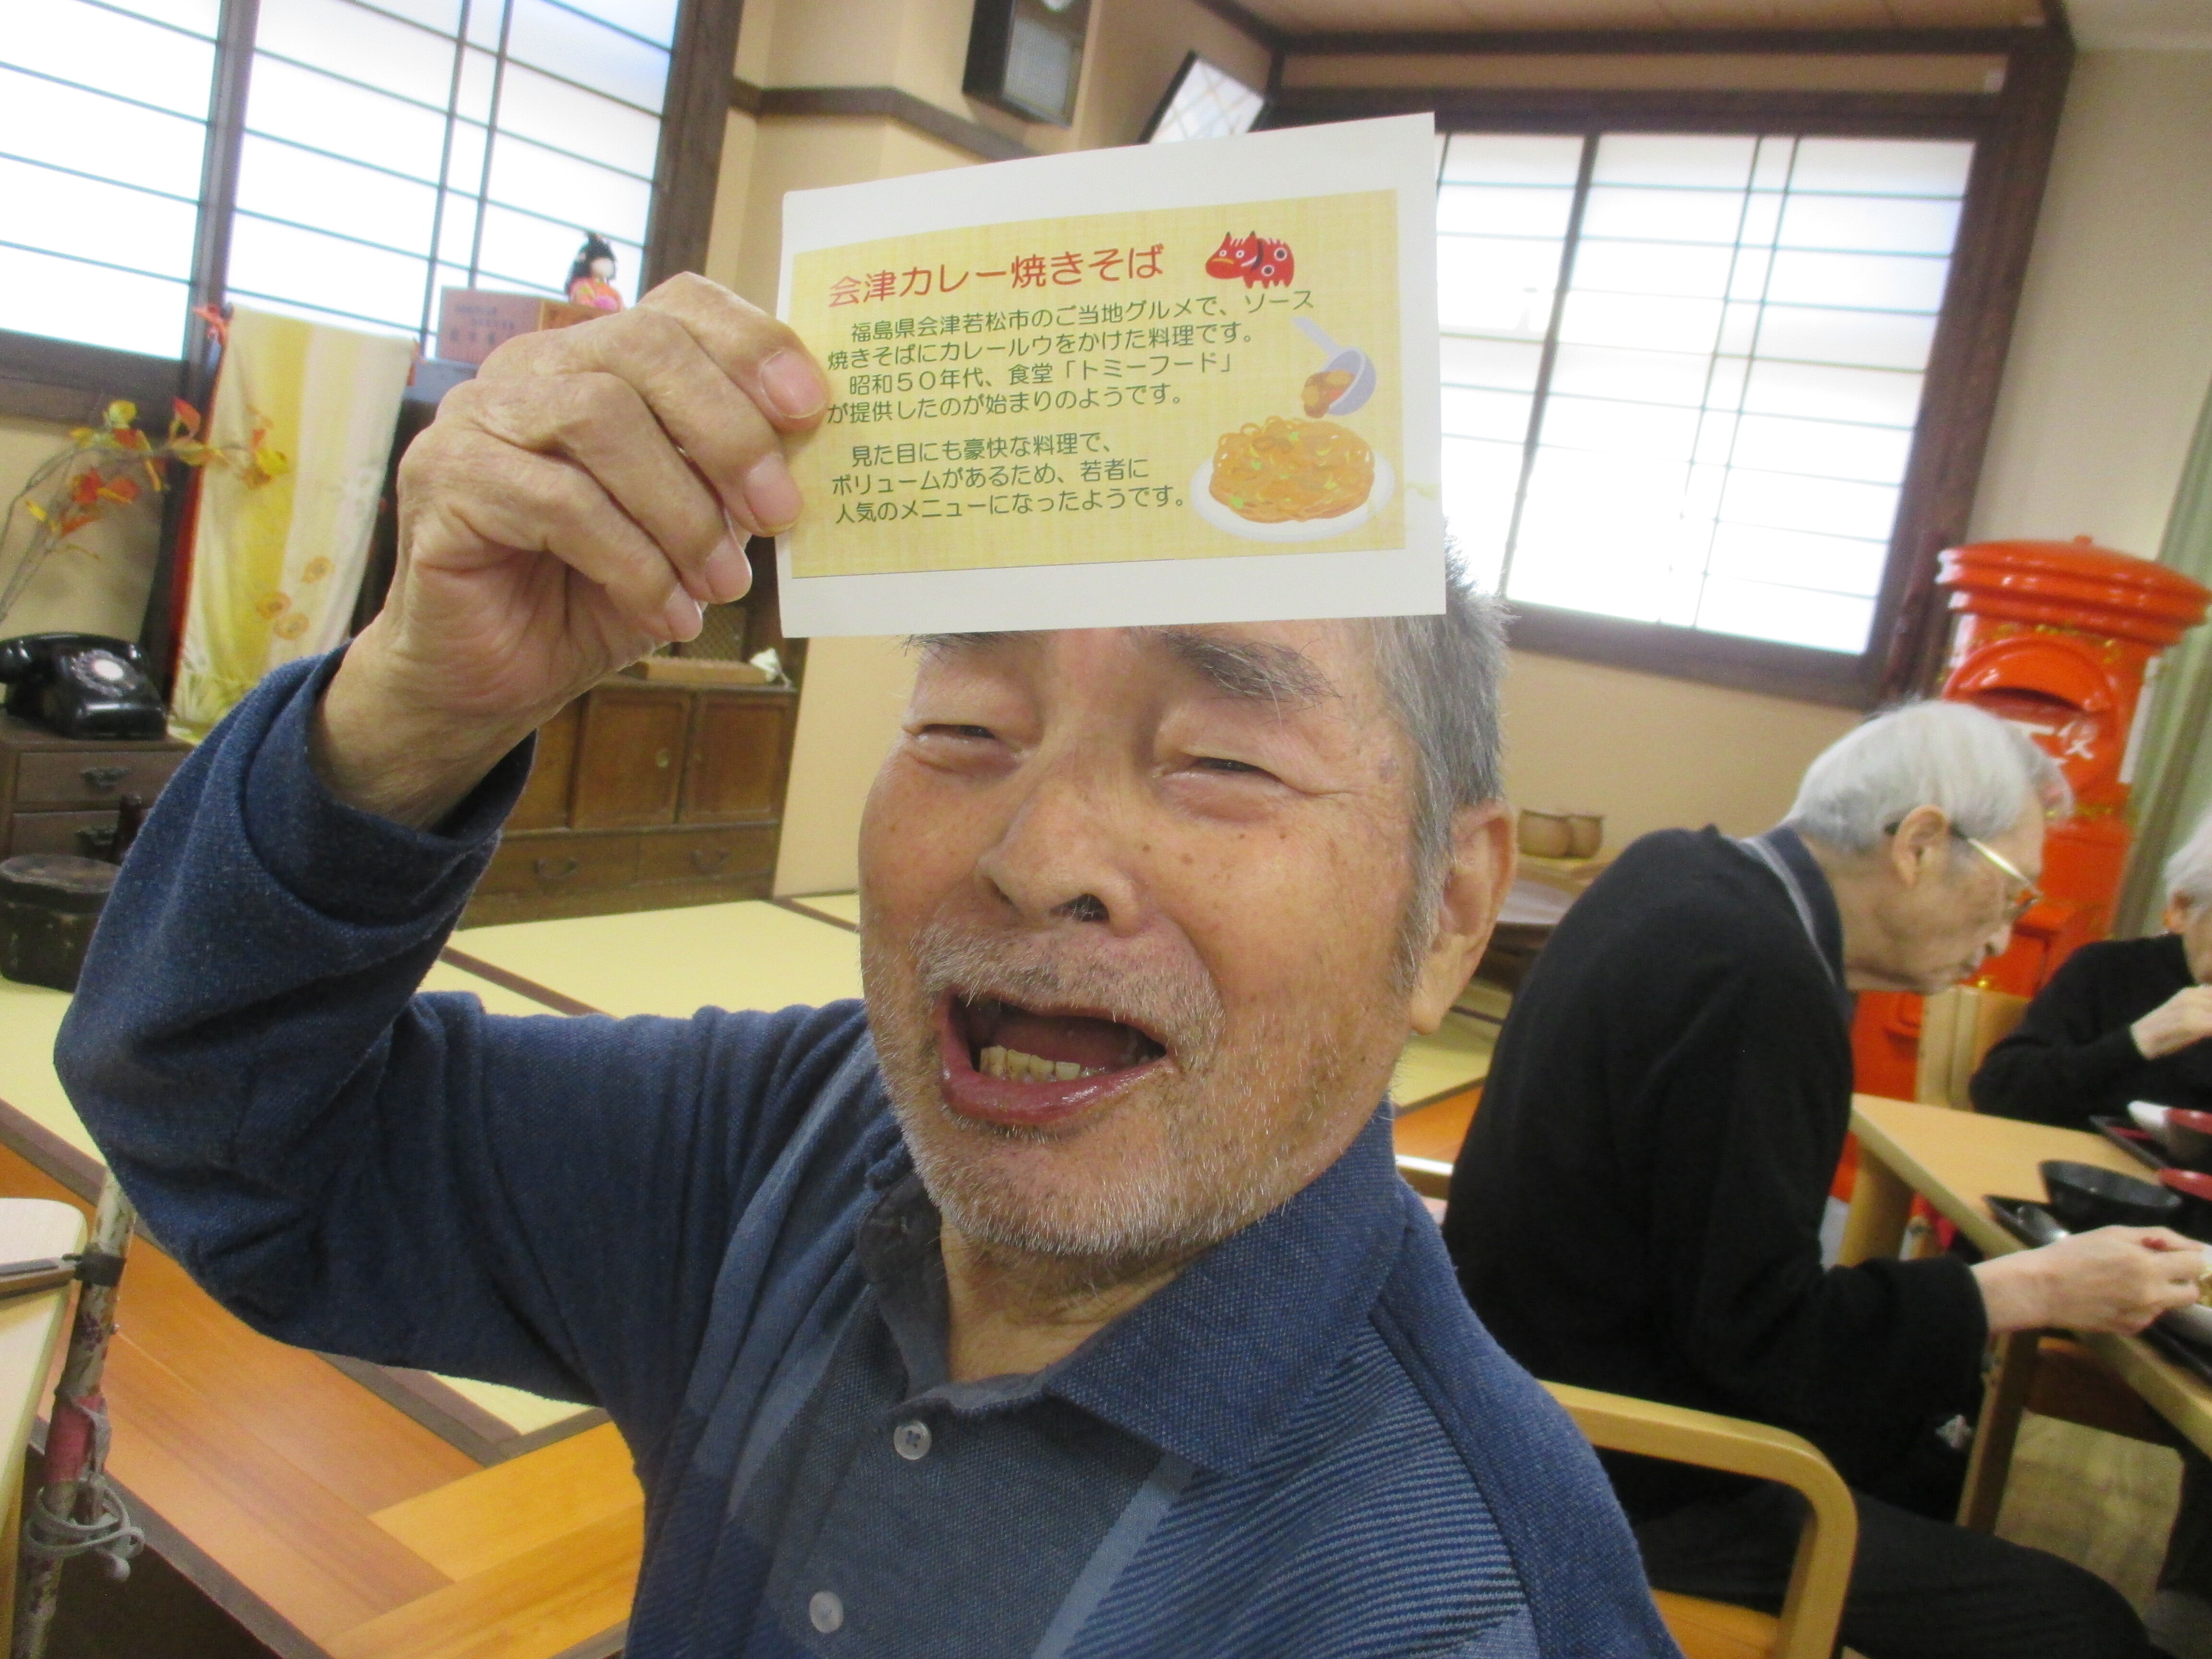 会津カレー焼きそば
福島県会津若松市のご当地グルメで、ソース
焼きそばにカレールウをかけた料理です。
昭和50年代、食堂「トミーフード」
が提供したのが始まりのようです。
見た目にも豪快な料理で、
ボリュームがあるため、若者に
人気のメニューになったようです。
便